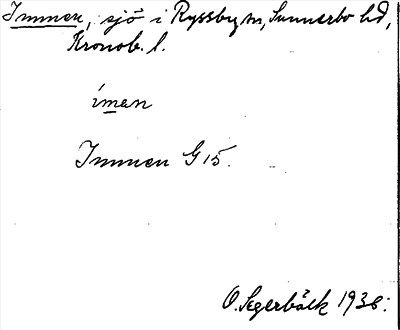 Immen, sjö i Ryssby sn, Sunnerbo hd,
Kronob. l.
ímen
Immen G 15.
O. Segerbäck 1936.